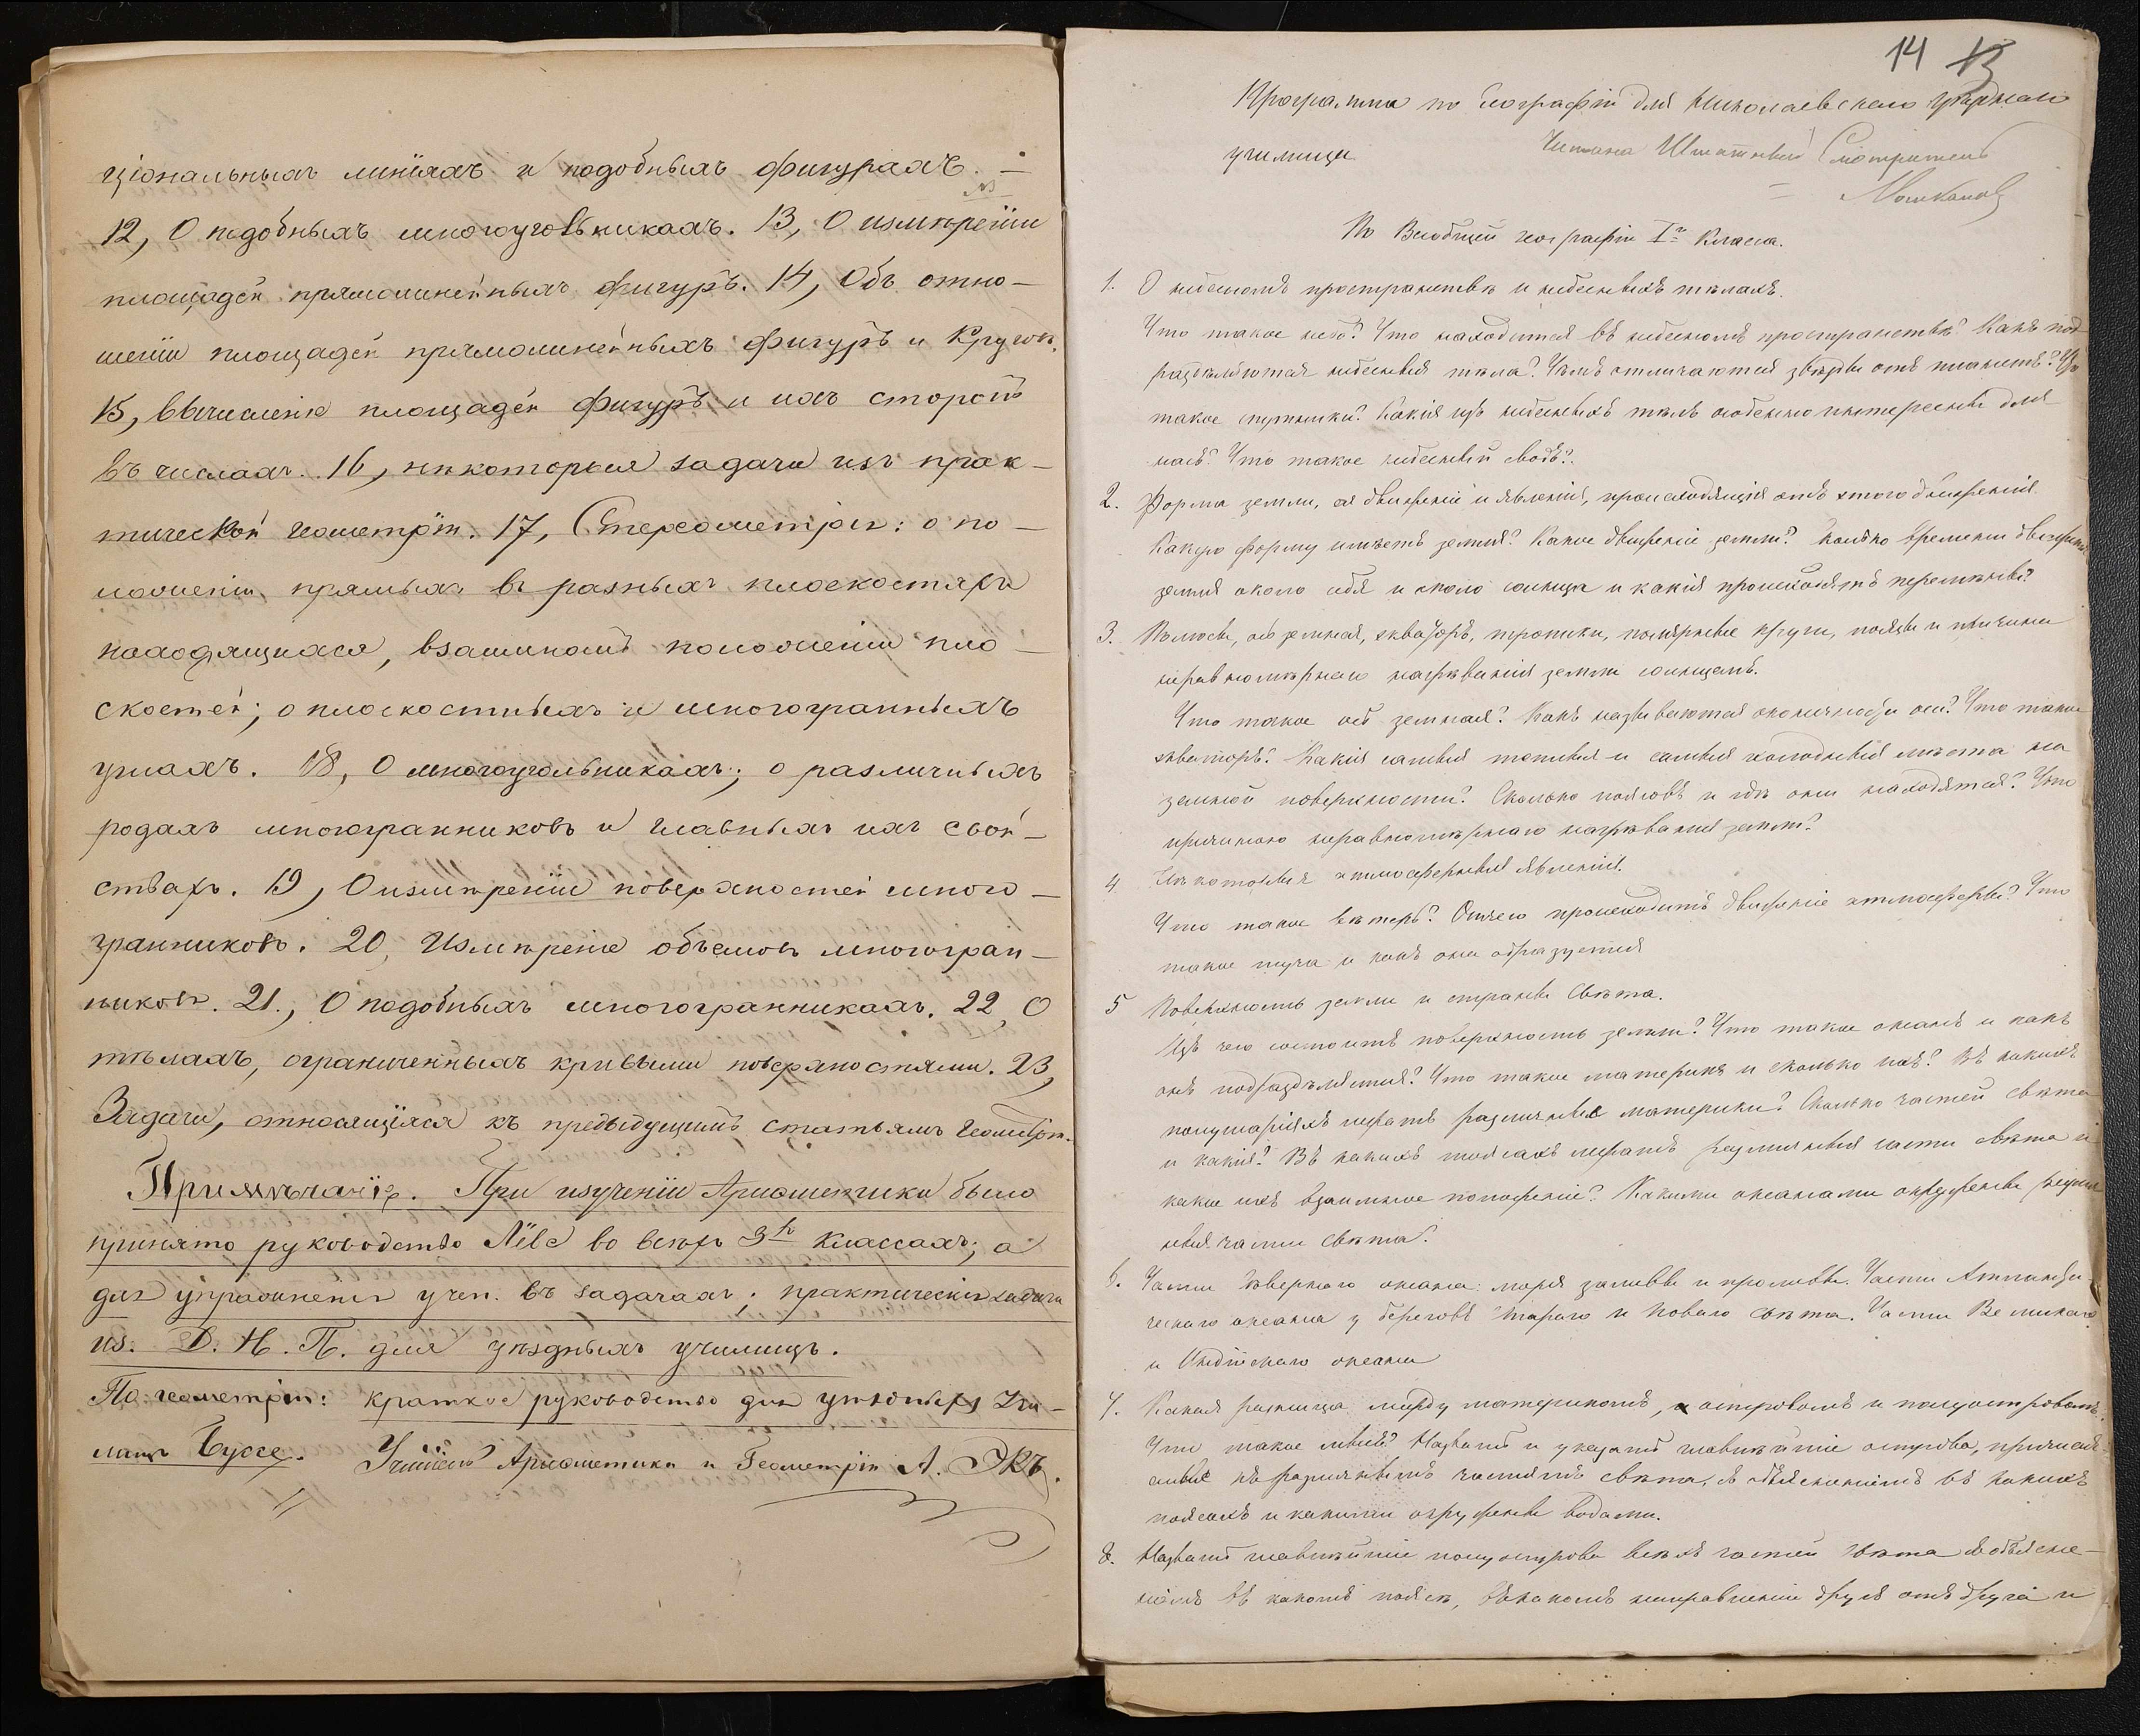 ціональныхъ линіяхъ и подобныхъ фигурахъ. —
12, О подобныхъ многоугольникахъ. 13, О измѣреніи
площадей прямолинейныхъ фигуръ. 14, Объ отно-
шеніи площадей прямолинейныхъ фигуръ и круговъ.
15, Вычисленіе площадей фигуръ и ихъ сторонъ
въ числахъ. 16, нѣкоторыя задачи изъ прак-
тической геометріи. 17, Стереометрія: о по-
ложеніи прямыхъ въ разныхъ плоскостяхъ
находящихся, взаимномъ положеніи пло-
скостей; о плоскостныхъ и многогранныхъ
углахъ. 18, О многоугольникахъ; о различныхъ
родахъ многогранниковъ и главныхъ ихъ свой-
ствахъ. 19, О измѣреніи поверхностей много-
гранниковъ. 20, Измѣреніе объемовъ многогран-
никовъ. 21., О подобныхъ многогранникахъ. 22, О
тѣлахъ, ограниченныхъ кривыми поверхностями. 23,
Задачи, относящіяся къ предыдущимъ статьямъ Геометріи.
Примѣчаніе. При изученіи Ариѳметики было
принято руководство во всѣхъ 3хъ классахъ; а
для упражненія учен. въ задачахъ; практическія задачи
из. Д. Н. П. для уѣздныхъ училищъ.
По геометріи: краткое руководство для уѣздныхъ Учи-
лищъ Буссе. Учитель Ариѳметики и Геометріи А. Экъ.
14 13
Программа по Географіи для Николаевскаго уѣзднаго
училища
Читана Штатный Смотритель
По Всеобщей географіи Iго Класса.
1. О небесномъ пространствѣ и небесныхъ тѣлахъ.
Что такое небо? Что находится въ небесномъ пространствѣ? Какъ под-
раздѣляются небесныя тѣла? Чѣмъ отличаются звѣзды отъ планетъ? Что
такое спутники? Какія изъ небесныхъ тѣлъ особенно интересны для
насъ? Что такое небесный сводъ?
2. Форма земли, ея движеніе и явленія, происходящія отъ этого движенія.
Какую форму имѣетъ земля? Какое движеніе земли? Сколько времени движется
земля около себя и около солнца и какія происходятъ перемѣны?
3. Полюсы, ось земная, экваторъ, тропики, полярные круги, поясы и причины
неравномѣрнаго нагрѣванія земли солнцемъ.
Что такое ось земная? Какъ называются оконечности оси? Что такое
экваторъ? Какія самыя теплыя и самыя холодныя мѣста на
земной поверхности? Сколько поясовъ и гдѣ они находятся? Что
причиною неравномѣрнаго нагрѣванія земли?
4. Нѣкоторыя атмосферныя явленія.
Что такое вѣтеръ? Отчего происходитъ движеніе атмосферы? Что
такое туча и какъ она образуется
5 Поверхность земли и страны свѣта.
Изъ чего состоитъ поверхность земли? Что такое океанъ и какъ
онъ подраздѣляется? Что такое материкъ и сколько ихъ? Въ какихъ
полушаріяхъ лежатъ различные материки? Сколько частей свѣта
и какія? Въ какихъ поясахъ лежатъ различныя части свѣта и
какое ихъ взаимное положеніе? Какими океанами окружены различ-
ныя части свѣта?
6. Части Сѣвернаго океана: моря заливы и проливы. Части Атланти-
ческаго океана у береговъ Стараго и Новаго свѣта. Части Великаго
и Индійскаго океана
7. Какая разница между материкомъ, островомъ и полуостровомъ.
Что такое мысъ? Назвать и указать главнѣйшіе острова, причисля-
емые къ различнымъ частямъ свѣта, съ объясненіемъ въ какихъ
поясахъ и какими окружены водами.
8. Назвать главнѣйшіе полуострова всѣхъ частей свѣта съ объясне-
ніемъ въ какомъ поясѣ, въ какомъ направленіи другъ отъ друга и